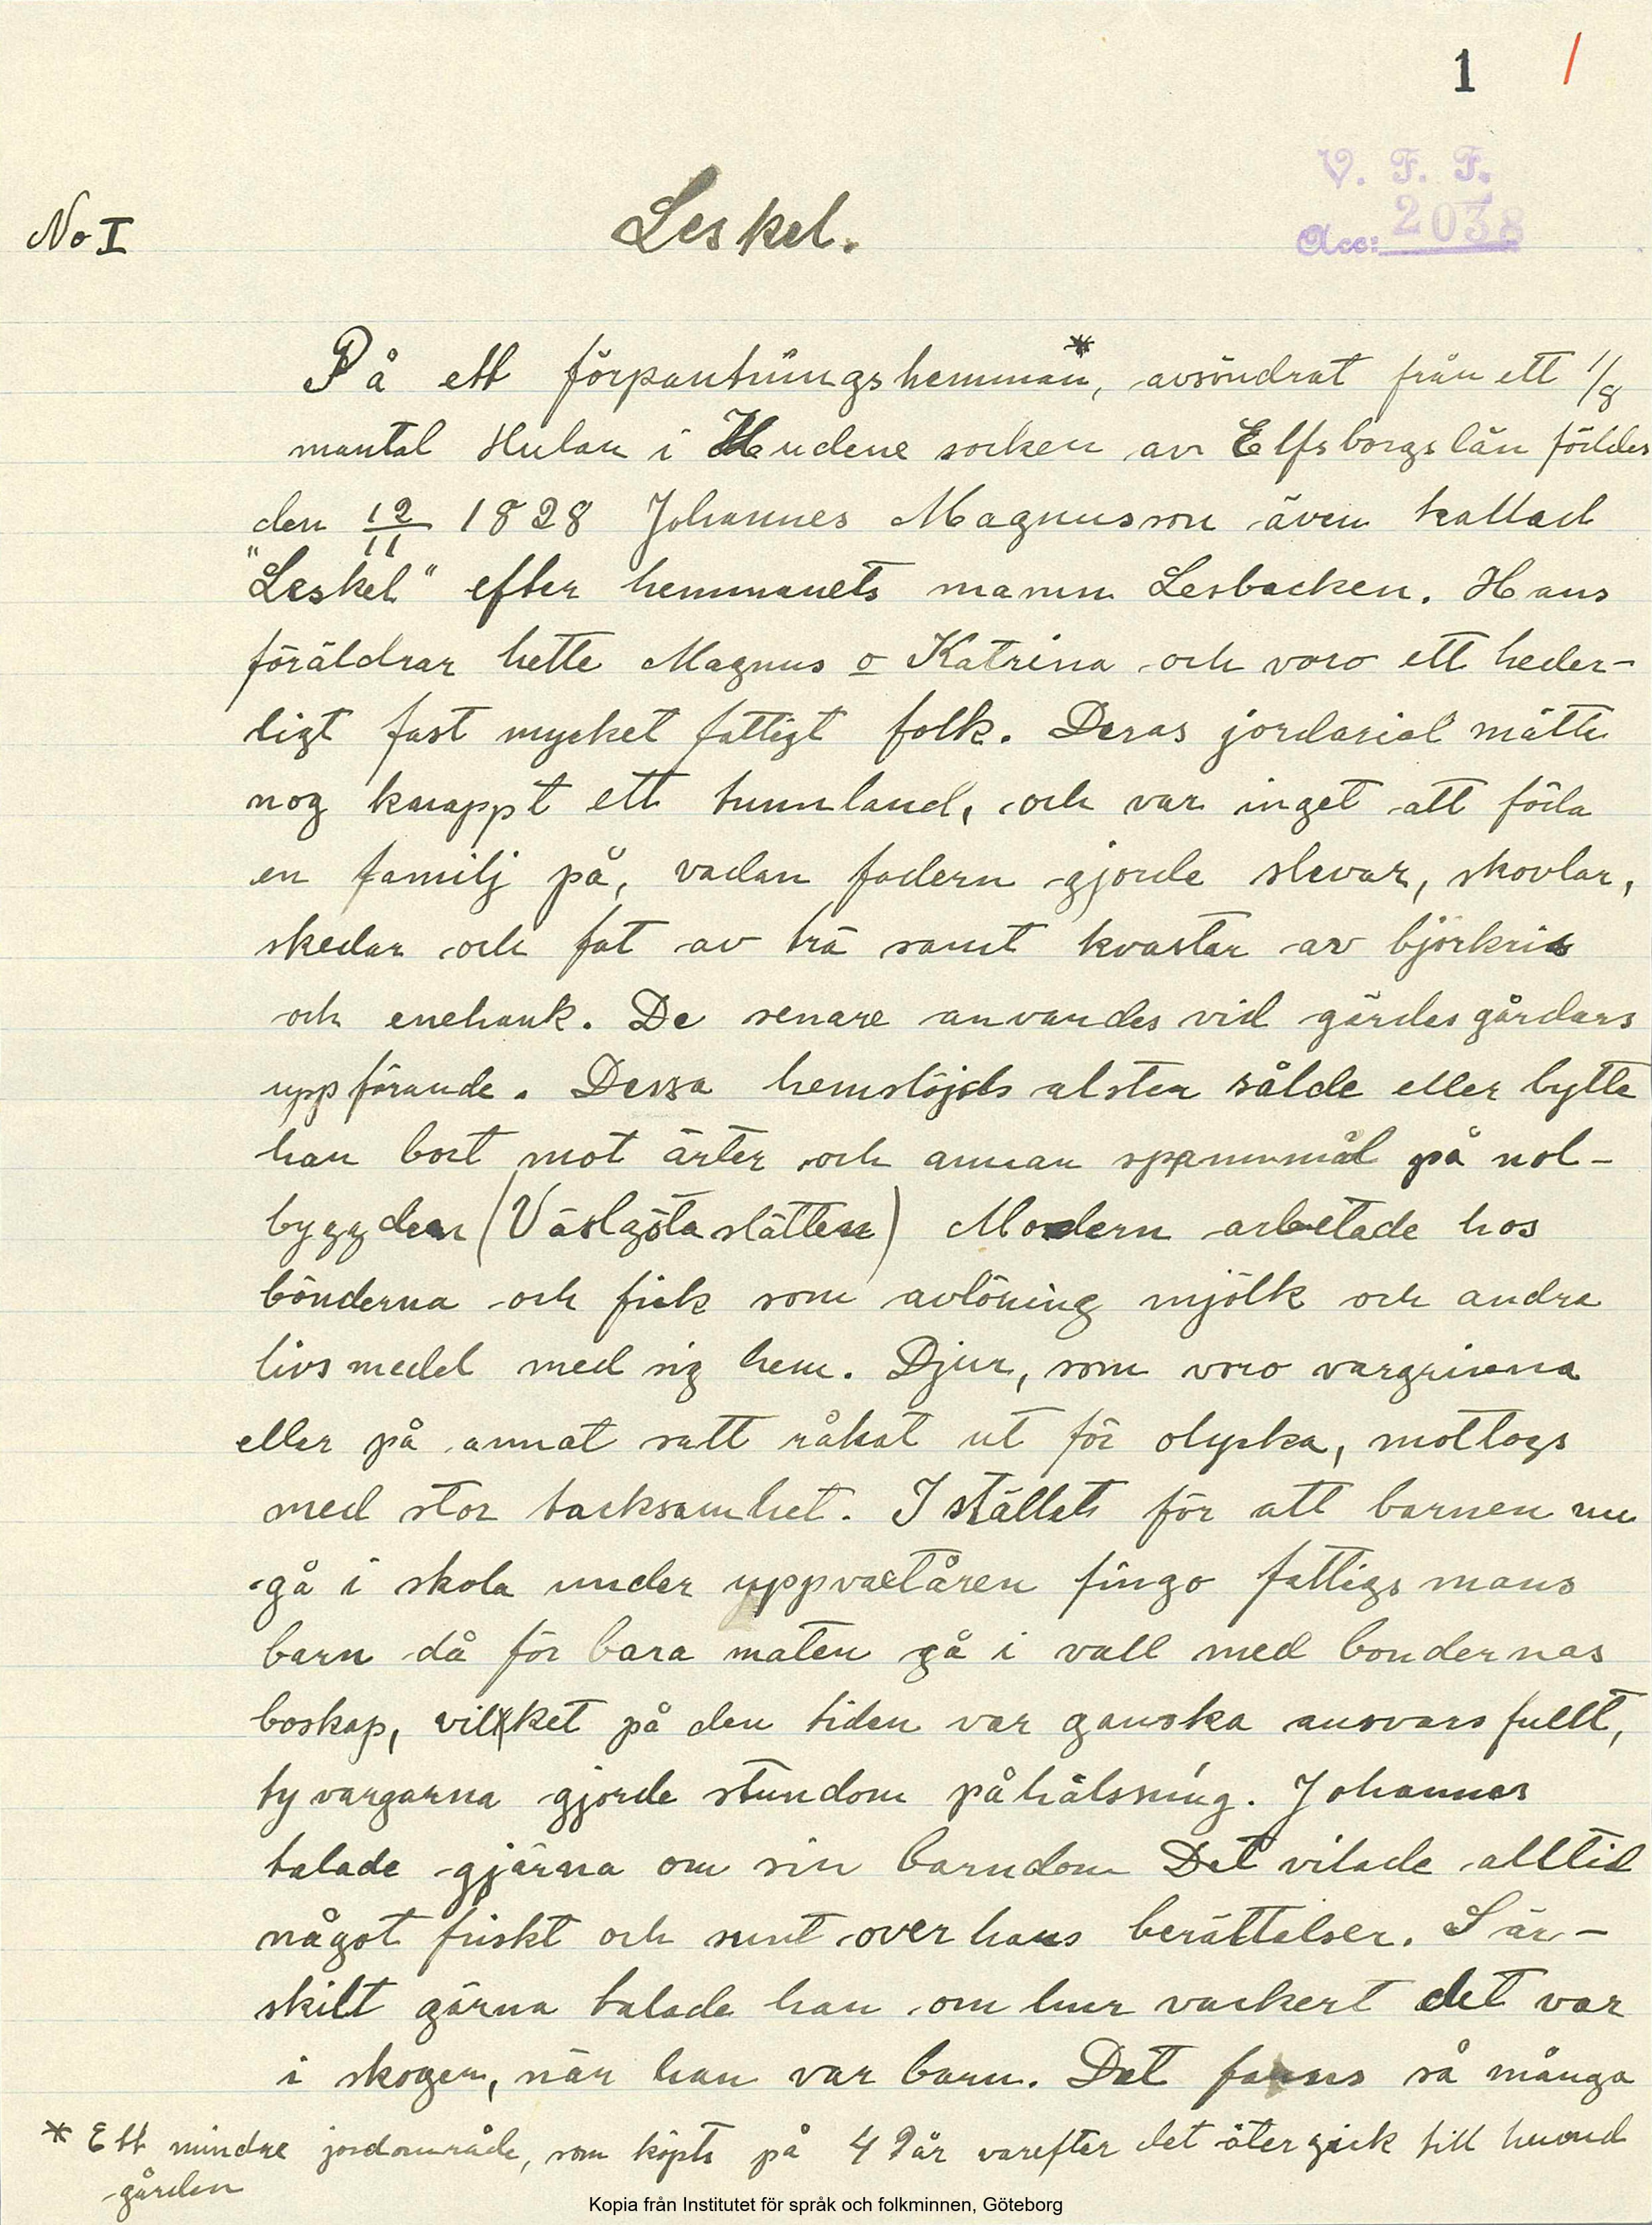 1 /
V. F. F.
Acc: 2038
No I
Leskel.
På ett förpantningshemman*, avsöndrat från ett 1/8
mantal Hulan i Hudene socken av Elfsborgs län föddes
den 12/11 1828 Johannes Magnusson även kallad
"Leskel" efter hemmanets namn Lesbacken. Hans
föräldrar hette Magnus o Katrina och voro ett heder-
ligt fast mycket fattigt folk. Deras jordarial mätte
nog knappt ett tunnland, och var inget att föda
en familj på, vadan fadern gjorde slevar, skovlar,
skedar och fat av trä samt kvastar av björkris
och enehank. De senare anvandes vid gärdesgårdars
uppförande. Dessa hemslöjds alster sålde eller bytte
han bort mot ärter och annan spannmål på nol-
byggden (Västgöta slätten) Modern arbetade hos
bönderna och fick som avlöning mjölk och andra
livsmedel med sig hem. Djur, som voro vargrivna
eller på annat satt råkat ut för olycka, mottogs
med stor tacksamhet. I stället för att barnen nu
gå i skola under uppvaxtåren fingo fattigs mans
barn då för bara maten gå i vall med bondernas
boskap, vilket på den tiden var ganska ansvarsfullt,
ty vargarna gjorde stundom påhälsning. Johannes
talade gjärna om sin barndom Det vilade alltid
något friskt och sunt over hans berättelser. Sär-
skilt gärna talade han om hur vackert det var
i skogen, när han var barn. Det fanns så många
* Ett mindre jordområde, som köpts på 49 år varefter det återgick till huvud
gården
Kopia från Institutet för språk och folkminnen, Göteborg